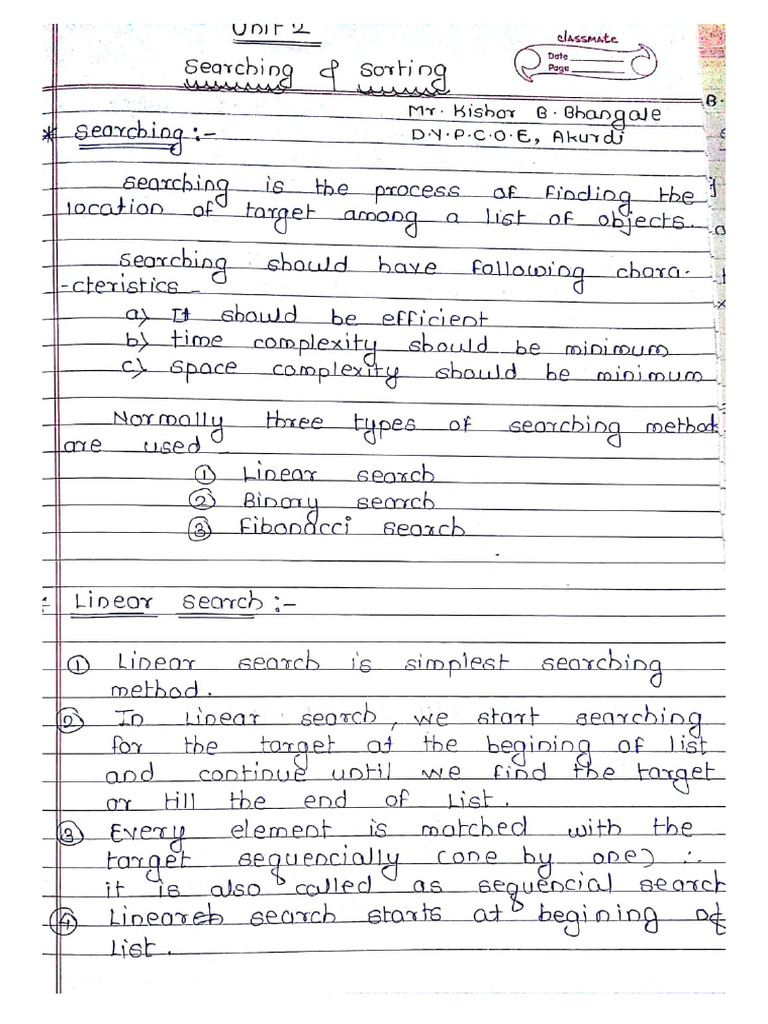 Unit 2
classmate
Date
Page
Searching & Sorting
Mr. Kishor B. Bhangale
D.Y.P.C.O.E, Akurdi
* Searching :-
Searching is the process of finding the
location of target among a list of objects.
Searching should have following chara-
-cteristics -
a) It should be efficient
b) time complexity should be minimum
c) space complexity should be minimum
Normally three types of searching method
are used -
① Linear search
② Binary search
③ Fibonacci search
Linear Search :-
① Linear search is simplest searching
method.
② In Linear search, we start searching
for the target at the begining of list
and continue until we find the target
or till the end of List.
③ Every element is matched with the
target sequencially (one by one) ∴
it is also called as sequencial search
④ Linear search starts at begining of
List.